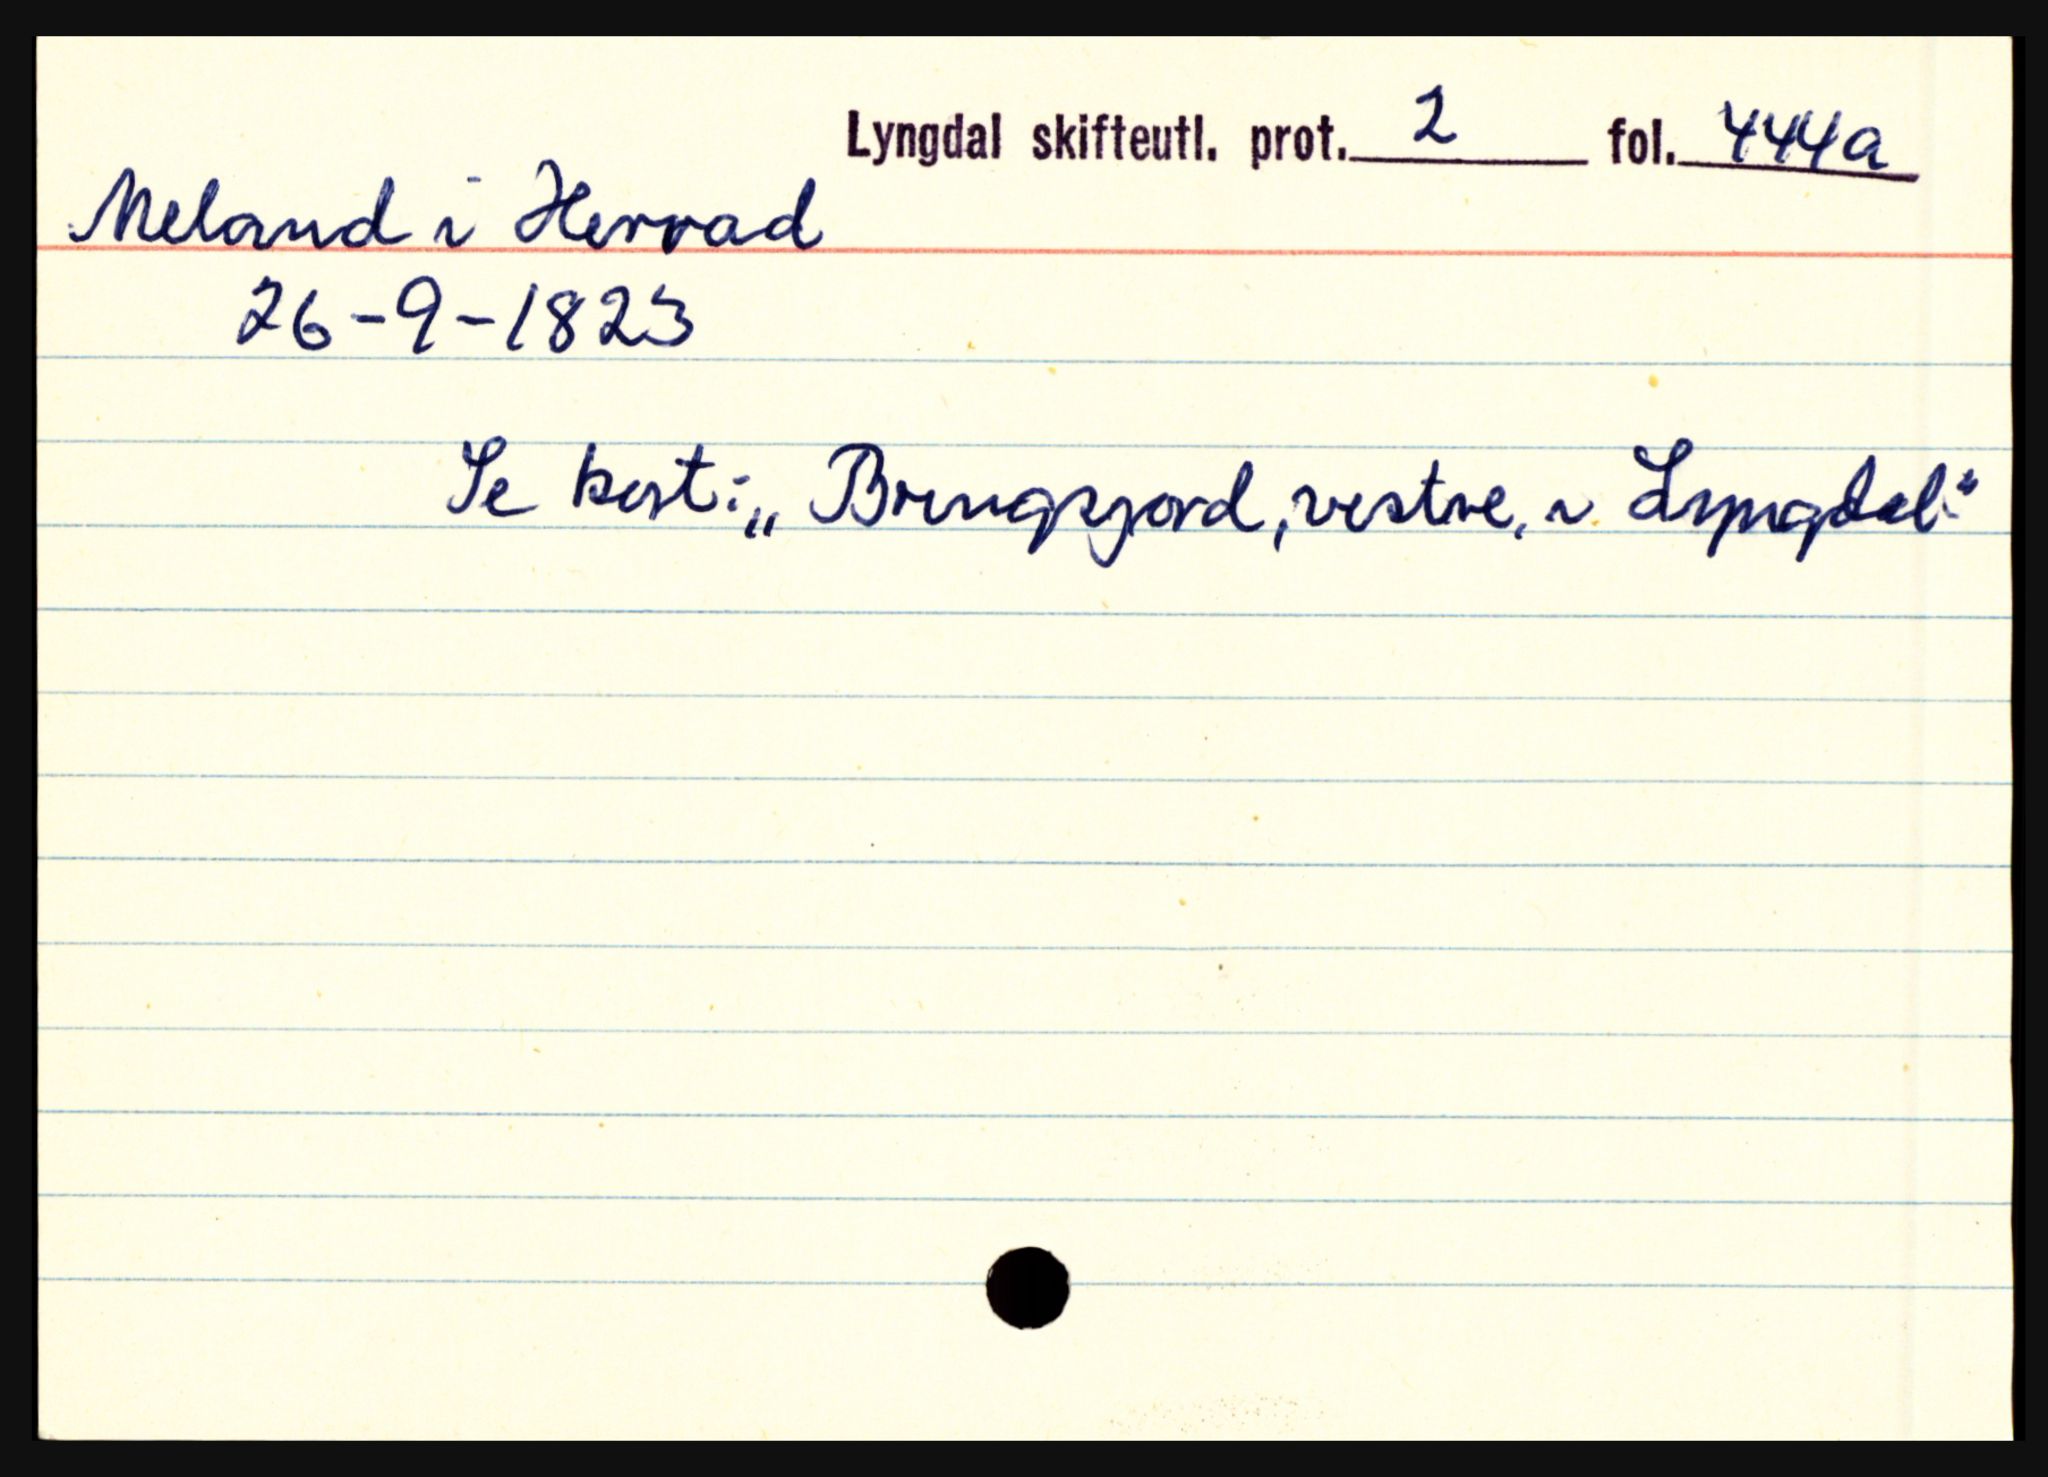 Lyngdal skifteutl. prot. 2 fol. 444a
Meland i Herrad
26-9-1823
Se kort: „Bringsjord, vestre, i Lyngdal."